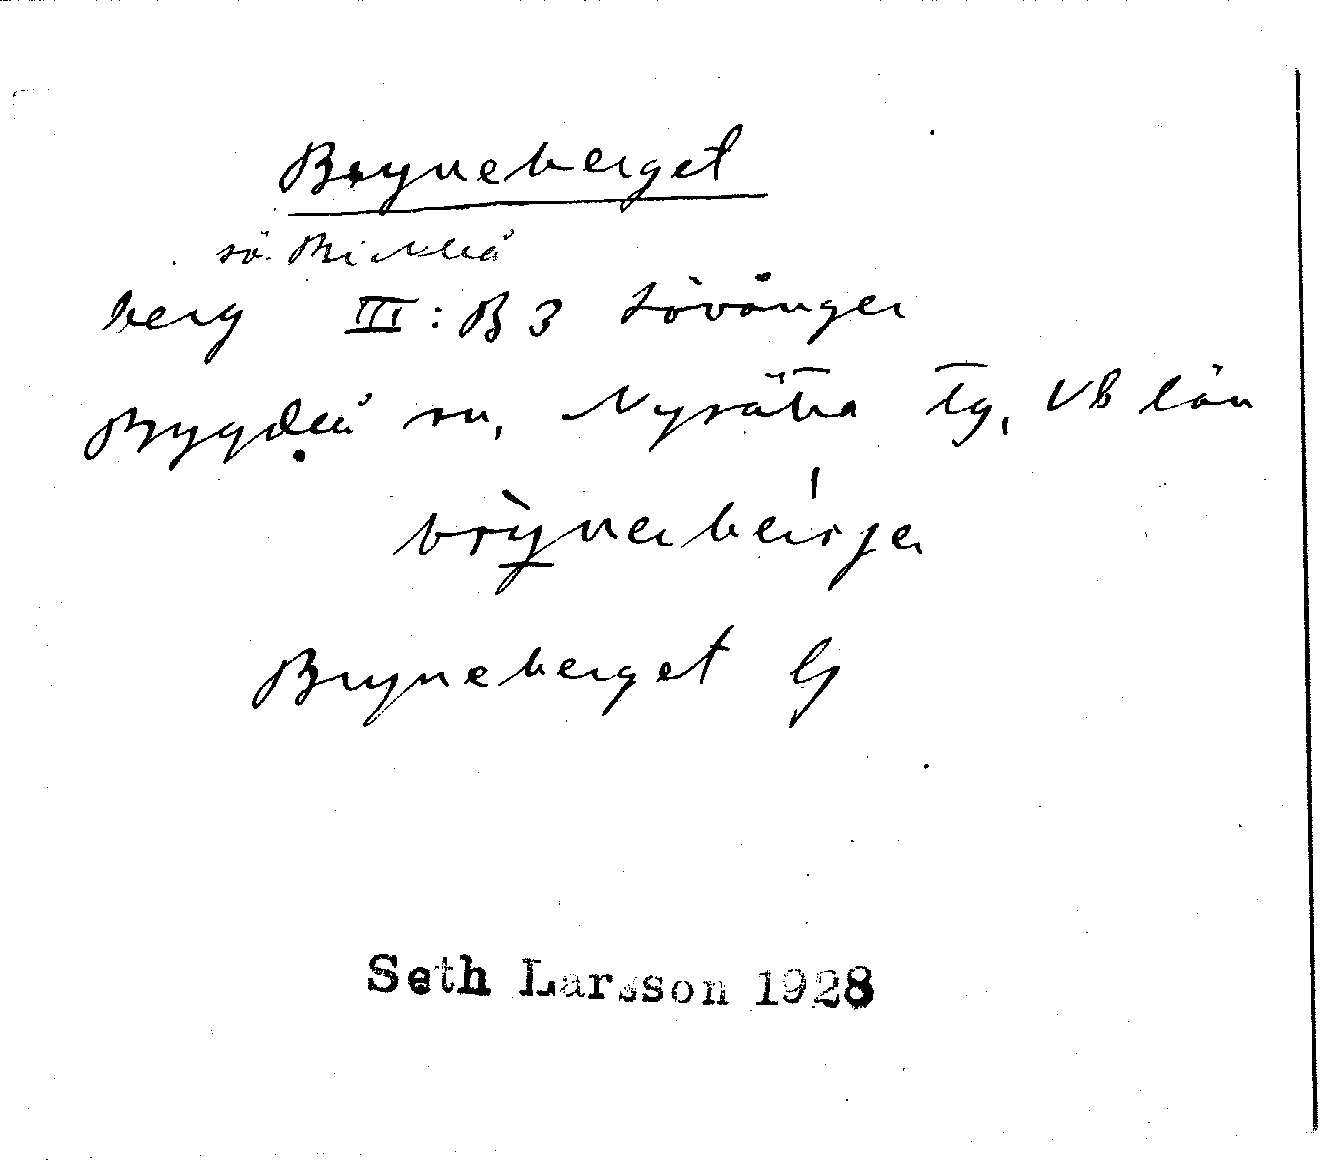 Bryneberget
sö. Bickleå
berg III: B 3 Lövånger
Bygdeå sn, Nysätra tg, VB län
brỳnerbérje
Bryneberget G
Seth Larsson 1928